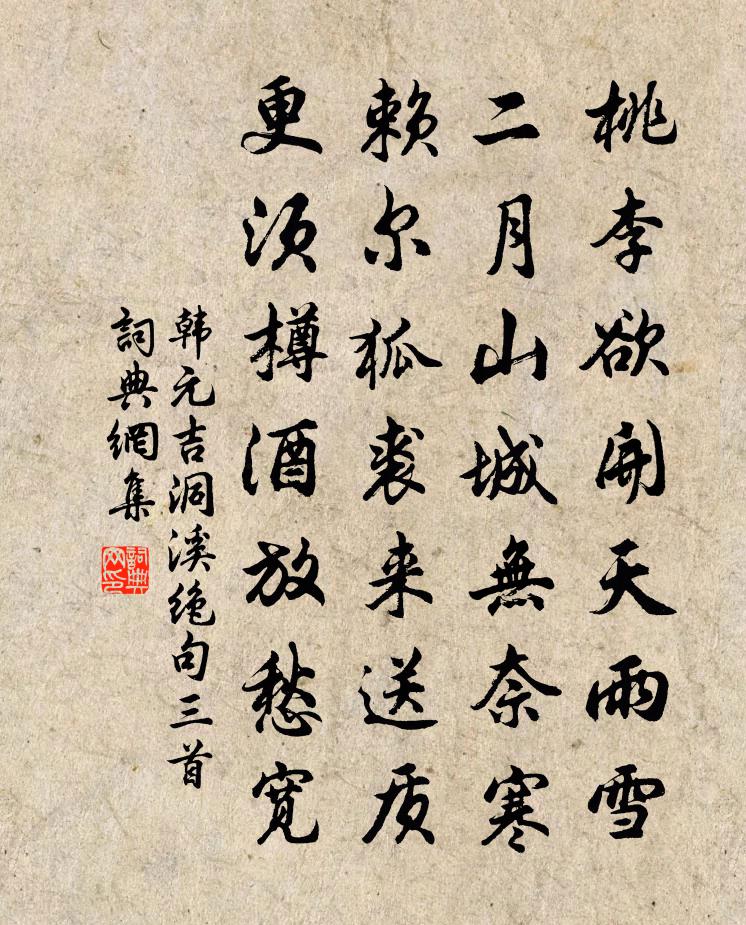 桃李欲開天雨雪
二月山城無奈寒
赖尔狐裘来送质
更须樽酒放愁寛
韩元吉洞溪绝句三首
詞典網集
詞典网印